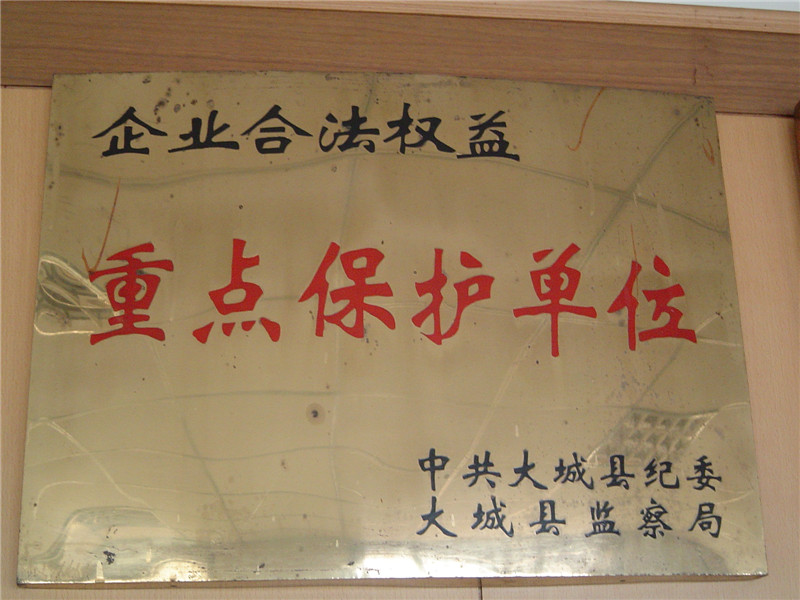 企业合法权益
重点保护单位
中共大城县纪委
大城县监察局